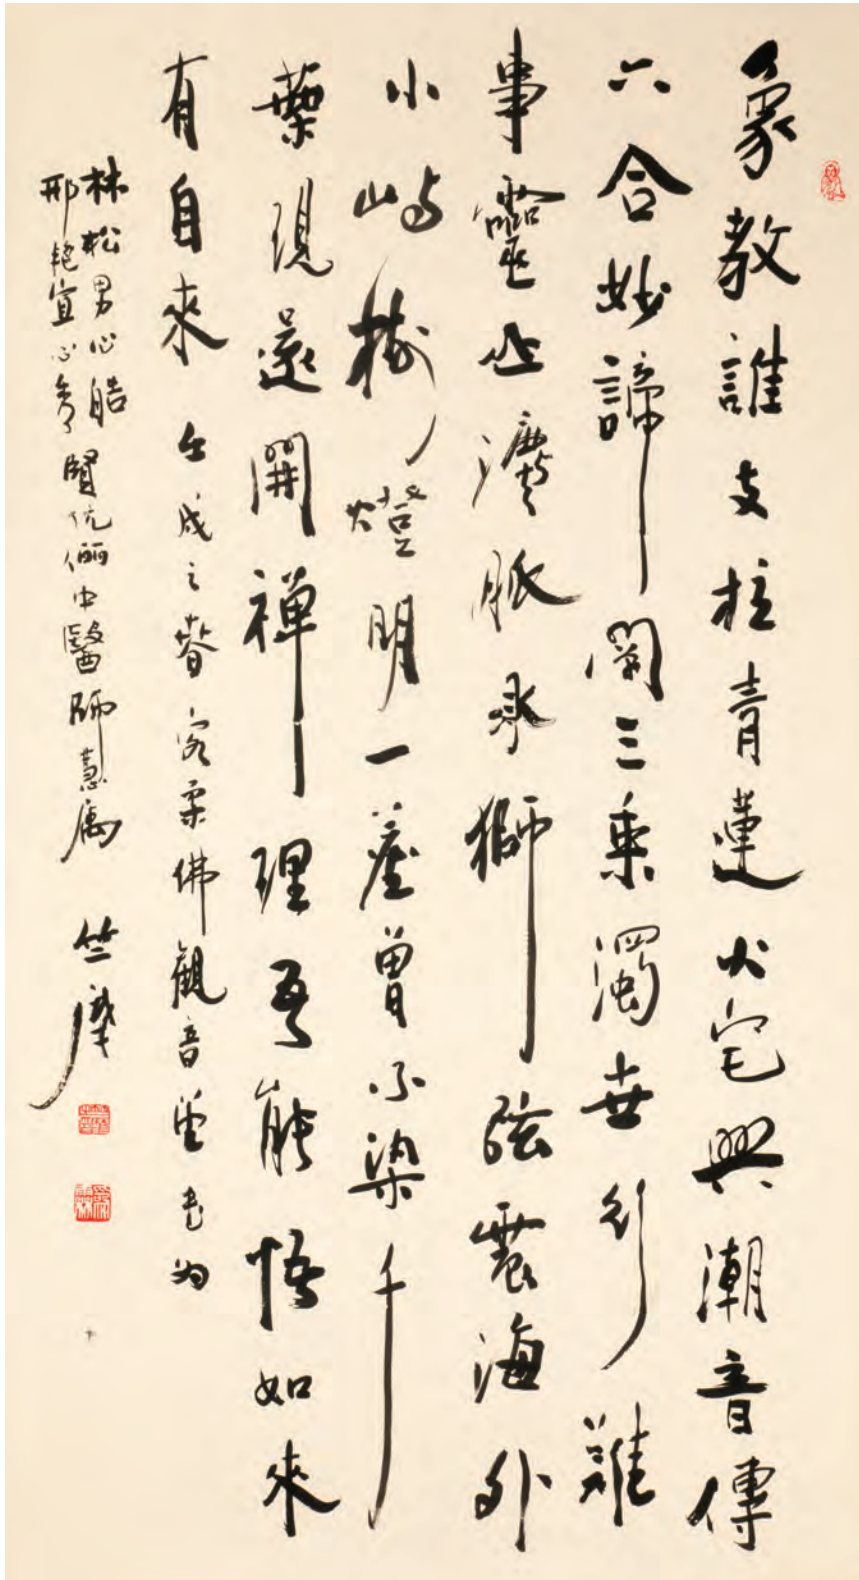 象教誰支拄青蓮火宅興潮音傳
六合妙諦闡三乘濁世行難
事靈山瀍脈承獅弦震海外
小嶼樹燈明一塵曾不染千
葉現還開禪理吾能悟如來
有自來 壬戌之春客柔佛觀音堂書為
林松男心皓
邢艷宣心 賢伉儷中醫師惠屬 竺摩